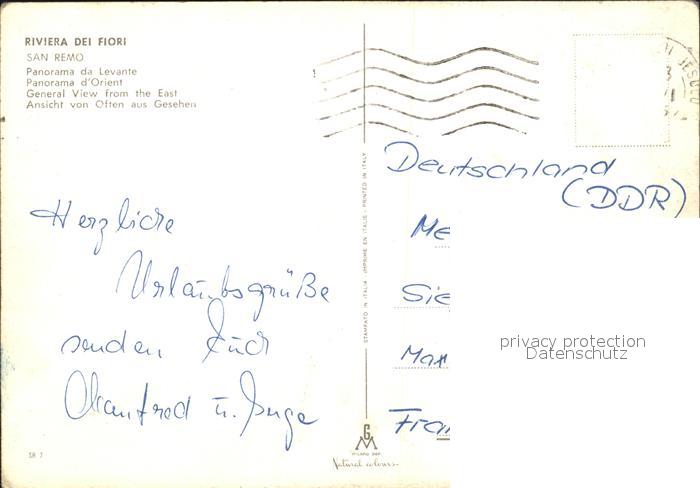 RIVIERA DEI FIORI
SAN REMO
Panorama da Levante
Panorama d'Orient
General View from the East
Ansicht von Often aus Gesehen
Herzliche
Urlaubsgrüße
senden Euch
Manfred u. Inge
SR 7
STAMPATO IN ITALIA - IMPRIME EN ITALIE - PRINTED IN ITALY
GM
MILANO DEP.
Natural colours
Deutschland
(DDR)
Me
Sie
Max
Fran
privacy protection
Datenschutz